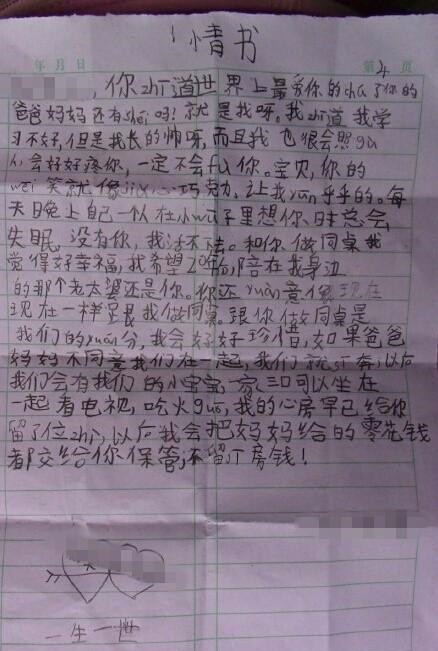 情书
年 月 日 第 4 页
,你zhī道世界上最爱你的chú了你的
爸爸妈妈还有shéi吗?就是我呀。我zhī道我学
习不好,但是我长的帅呀,而且我也很会照gù
人,会好好疼你,一定不会fù你。宝贝,你的
wēi笑就像jiǔ心巧克力,让我yūn乎乎的。每
天晚上自己一个人在小wū子里想你,时总会
失眠,没有你,我活不下去。和你做同桌我
觉得好幸福,我希望20年后,陪在我身边
的那个老太婆还是你。你还yuàn意像现在
现在一样跟我做同桌。跟你做同桌是
我们的yuán分,我会好好珍惜,如果爸爸
妈妈不同意我们在一起,我们就sī奔,以后
我们会有我们的小宝宝,一家三口可以坐在
一起看电视,吃火guō,我的心房早已给你
留了位zhì,以后我会把妈妈给的零花钱
都交给你保管,不留sī房钱!
一生一世